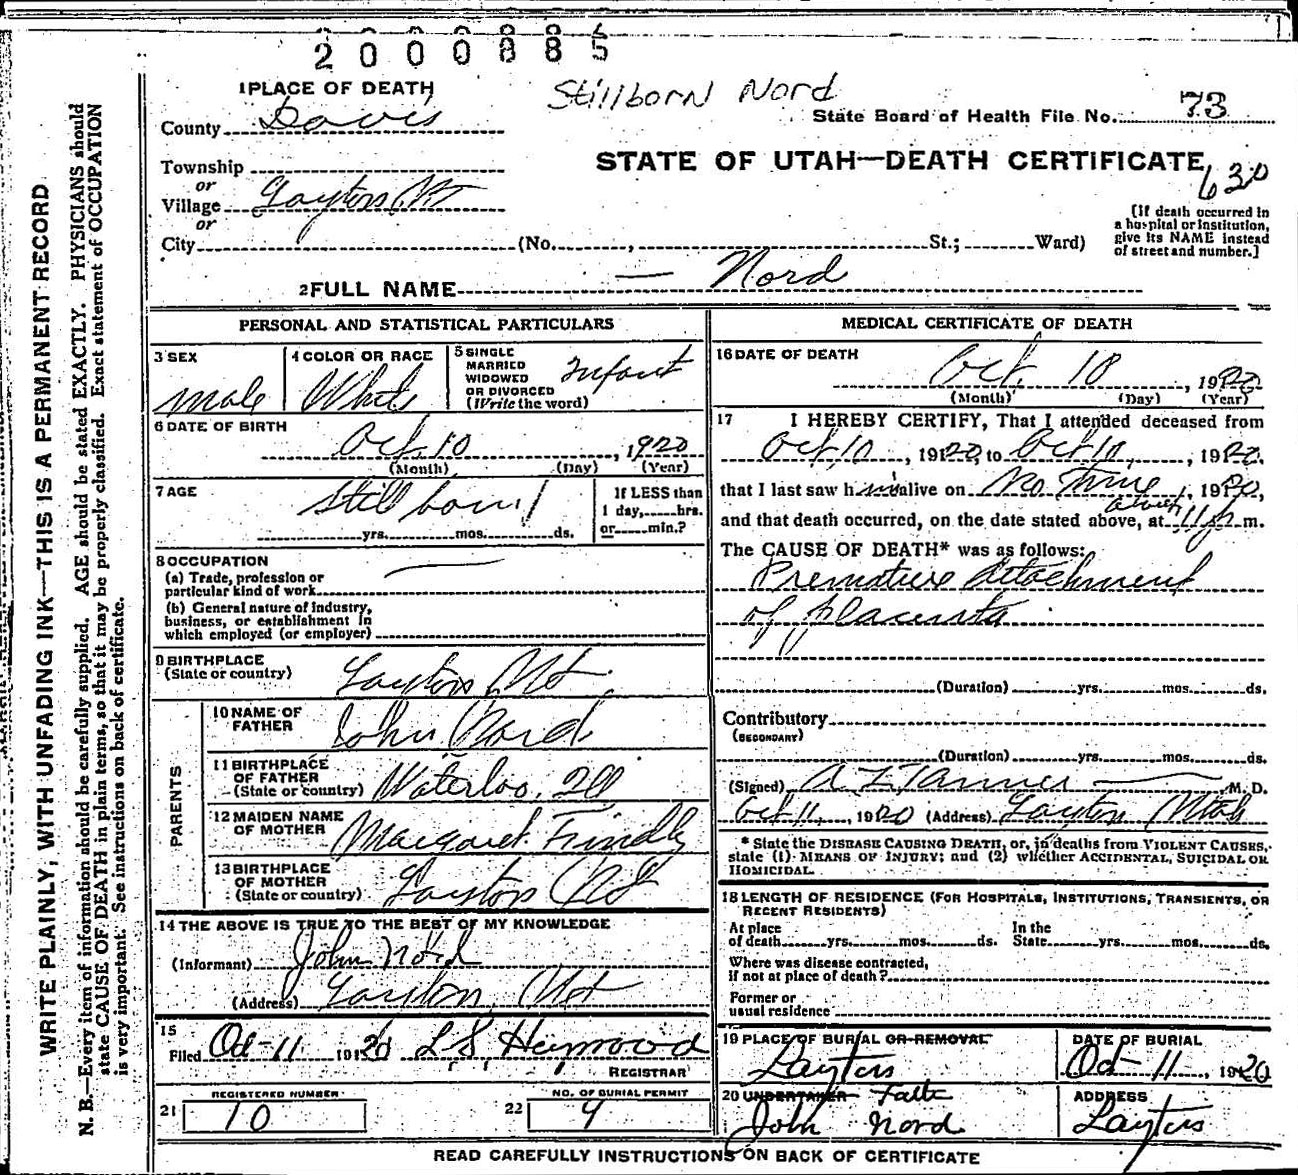 2000885
1 PLACE OF DEATH
Stillborn Nord
County Davis
State Board of Health File No. 73
Township
or
STATE OF UTAH—DEATH CERTIFICATE
630
Village Layton Ut
or
City (No. , St.; Ward)
[If death occurred in
a hospital or institution,
give its NAME instead
of street and number.]
2 FULL NAME — Nord
PERSONAL AND STATISTICAL PARTICULARS
3 SEX
male
4 COLOR OR RACE
White
5 SINGLE
MARRIED
WIDOWED
OR DIVORCED
(Write the word)
Infant
6 DATE OF BIRTH
Oct. 10, 1920
(Month) (Day) (Year)
7 AGE
Stillborn
yrs. mos. ds.
If LESS than
1 day, hrs.
or min.?
8 OCCUPATION
(a) Trade, profession or
particular kind of work
(b) General nature of industry,
business, or establishment in
which employed (or employer)
9 BIRTHPLACE
(State or country) Layton, Ut.
PARENTS
10 NAME OF
FATHER John Nord
11 BIRTHPLACE
OF FATHER
(State or country) Waterloo, Ill
12 MAIDEN NAME
OF MOTHER Margaret
13 BIRTHPLACE
OF MOTHER
(State or country) Layton Ut
14 THE ABOVE IS TRUE TO THE BEST OF MY KNOWLEDGE
(Informant) John Nord
(Address) Layton, Ut
15
Filed Oct-11 1920 L S, Heywood
REGISTRAR
21 REGISTERED NUMBER
10
22 NO. OF BURIAL PERMIT
9
MEDICAL CERTIFICATE OF DEATH
16 DATE OF DEATH
Oct. 10, 1920
(Month) (Day) (Year)
17 I HEREBY CERTIFY, That I attended deceased from
Oct 10, 1920, to Oct 10, 1920,
that I last saw him alive on No Time, 1920,
and that death occurred, on the date stated above, at about 11 p m.
The CAUSE OF DEATH* was as follows:
Premature detachment
of placenta
(Duration) yrs. mos. ds.
Contributory
(SECONDARY)
(Duration) yrs. mos. ds.
(Signed) A Z Tanner M. D.
Oct 11, 1920 (Address) Layton Utah
* State the DISEASE CAUSING DEATH, or, in deaths from VIOLENT CAUSES,
state (1) MEANS OF INJURY; and (2) whether ACCIDENTAL, SUICIDAL OR
HOMICIDAL.
18 LENGTH OF RESIDENCE (FOR HOSPITALS, INSTITUTIONS, TRANSIENTS, OR
RECENT RESIDENTS)
At place
of death yrs. mos. ds.
In the
State yrs. mos. ds.
Where was disease contracted,
if not at place of death?
Former or
usual residence
19 PLACE OF BURIAL OR REMOVAL
Layton
DATE OF BURIAL
Oct-11, 1920
20 UNDERTAKER
John Nord
ADDRESS
Layton
READ CAREFULLY INSTRUCTIONS ON BACK OF CERTIFICATE
WRITE PLAINLY, WITH UNFADING INK—THIS IS A PERMANENT RECORD
N. B.—Every item of information should be carefully supplied. AGE should be stated EXACTLY. PHYSICIANS should
state CAUSE OF DEATH in plain terms, so that it may be properly classified. Exact statement of OCCUPATION
is very important. See instructions on back of certificate.